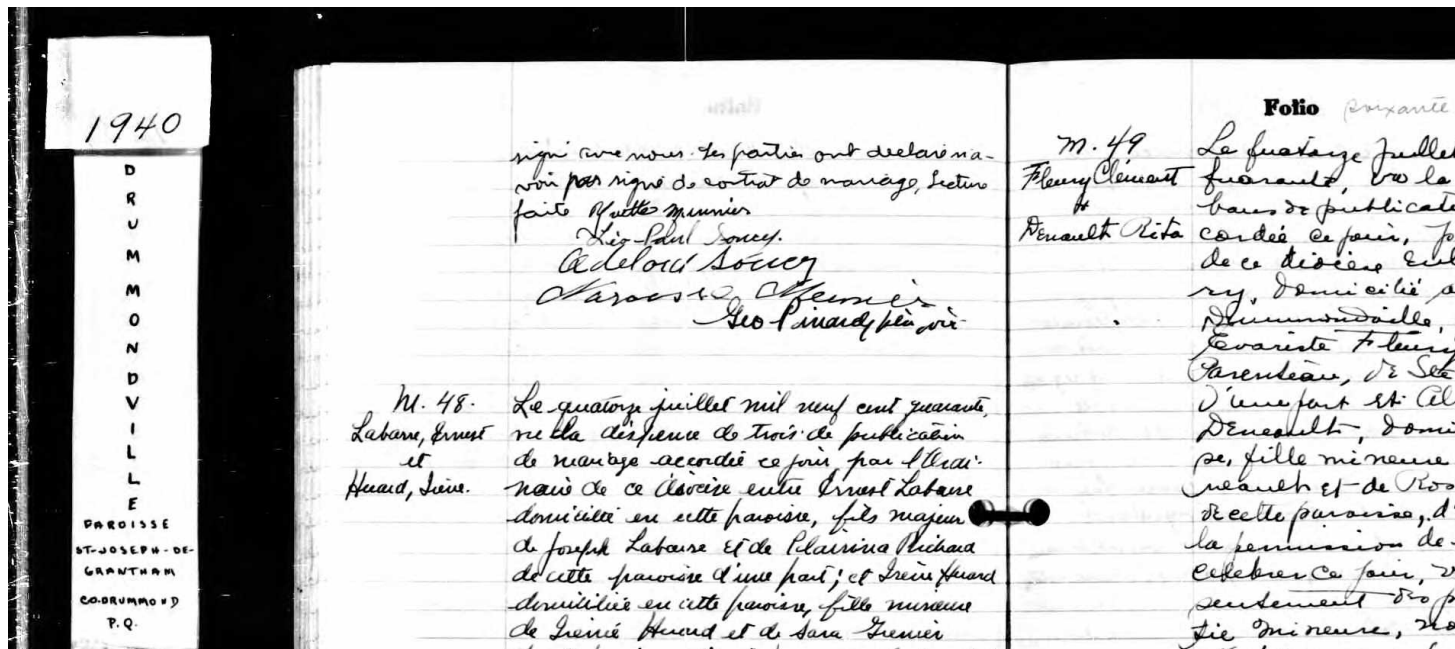 1940
DRUMMONDVILLE
PAROISSE
ST-JOSEPH-DE-
GRANTHAM
CO. DRUMMOND
P.Q.
signé avec nous. Les parties ont déclaré n'a-
voir pas signé de contrat de mariage, Lecture
faite Yvette Meunier
Léo-Paul Soucy.
Adelard Soucy
Narcisse Meunier
Geo Pinard ptre
M. 48.
Labarre, Ernest
et
Huard, Irène.
Le quatorze juillet mil neuf cent quarante,
vu la dispense de trois de publication
de mariage accordée ce jour, par l'Ordi-
naire de ce diocèse entre Ernest Labarre
domicilié en cette paroisse, fils majeur
de Joseph Labarre et de Richard
de cette paroisse d'une part; et Irène Huard
domiciliée en cette paroisse, fille mineure
de Huard et de Sara Grenier
Folio soixante
M. 49
Fleury Clément
et
Deneault Rita
Le quatorze juillet
quarante, vu la
bans de publicat
cordée ce jour, p
de ce diocèse ent
ry, domicilié a
Drummondville,
Evariste Fleury
Parenteau, de Ste
d'une part et Cl
Deneault, domi
se, fille mineure
neault et de Ros
de cette paroisse, d'
la permission de
célébrer ce jour, v
sentement des p
tie mineure, no